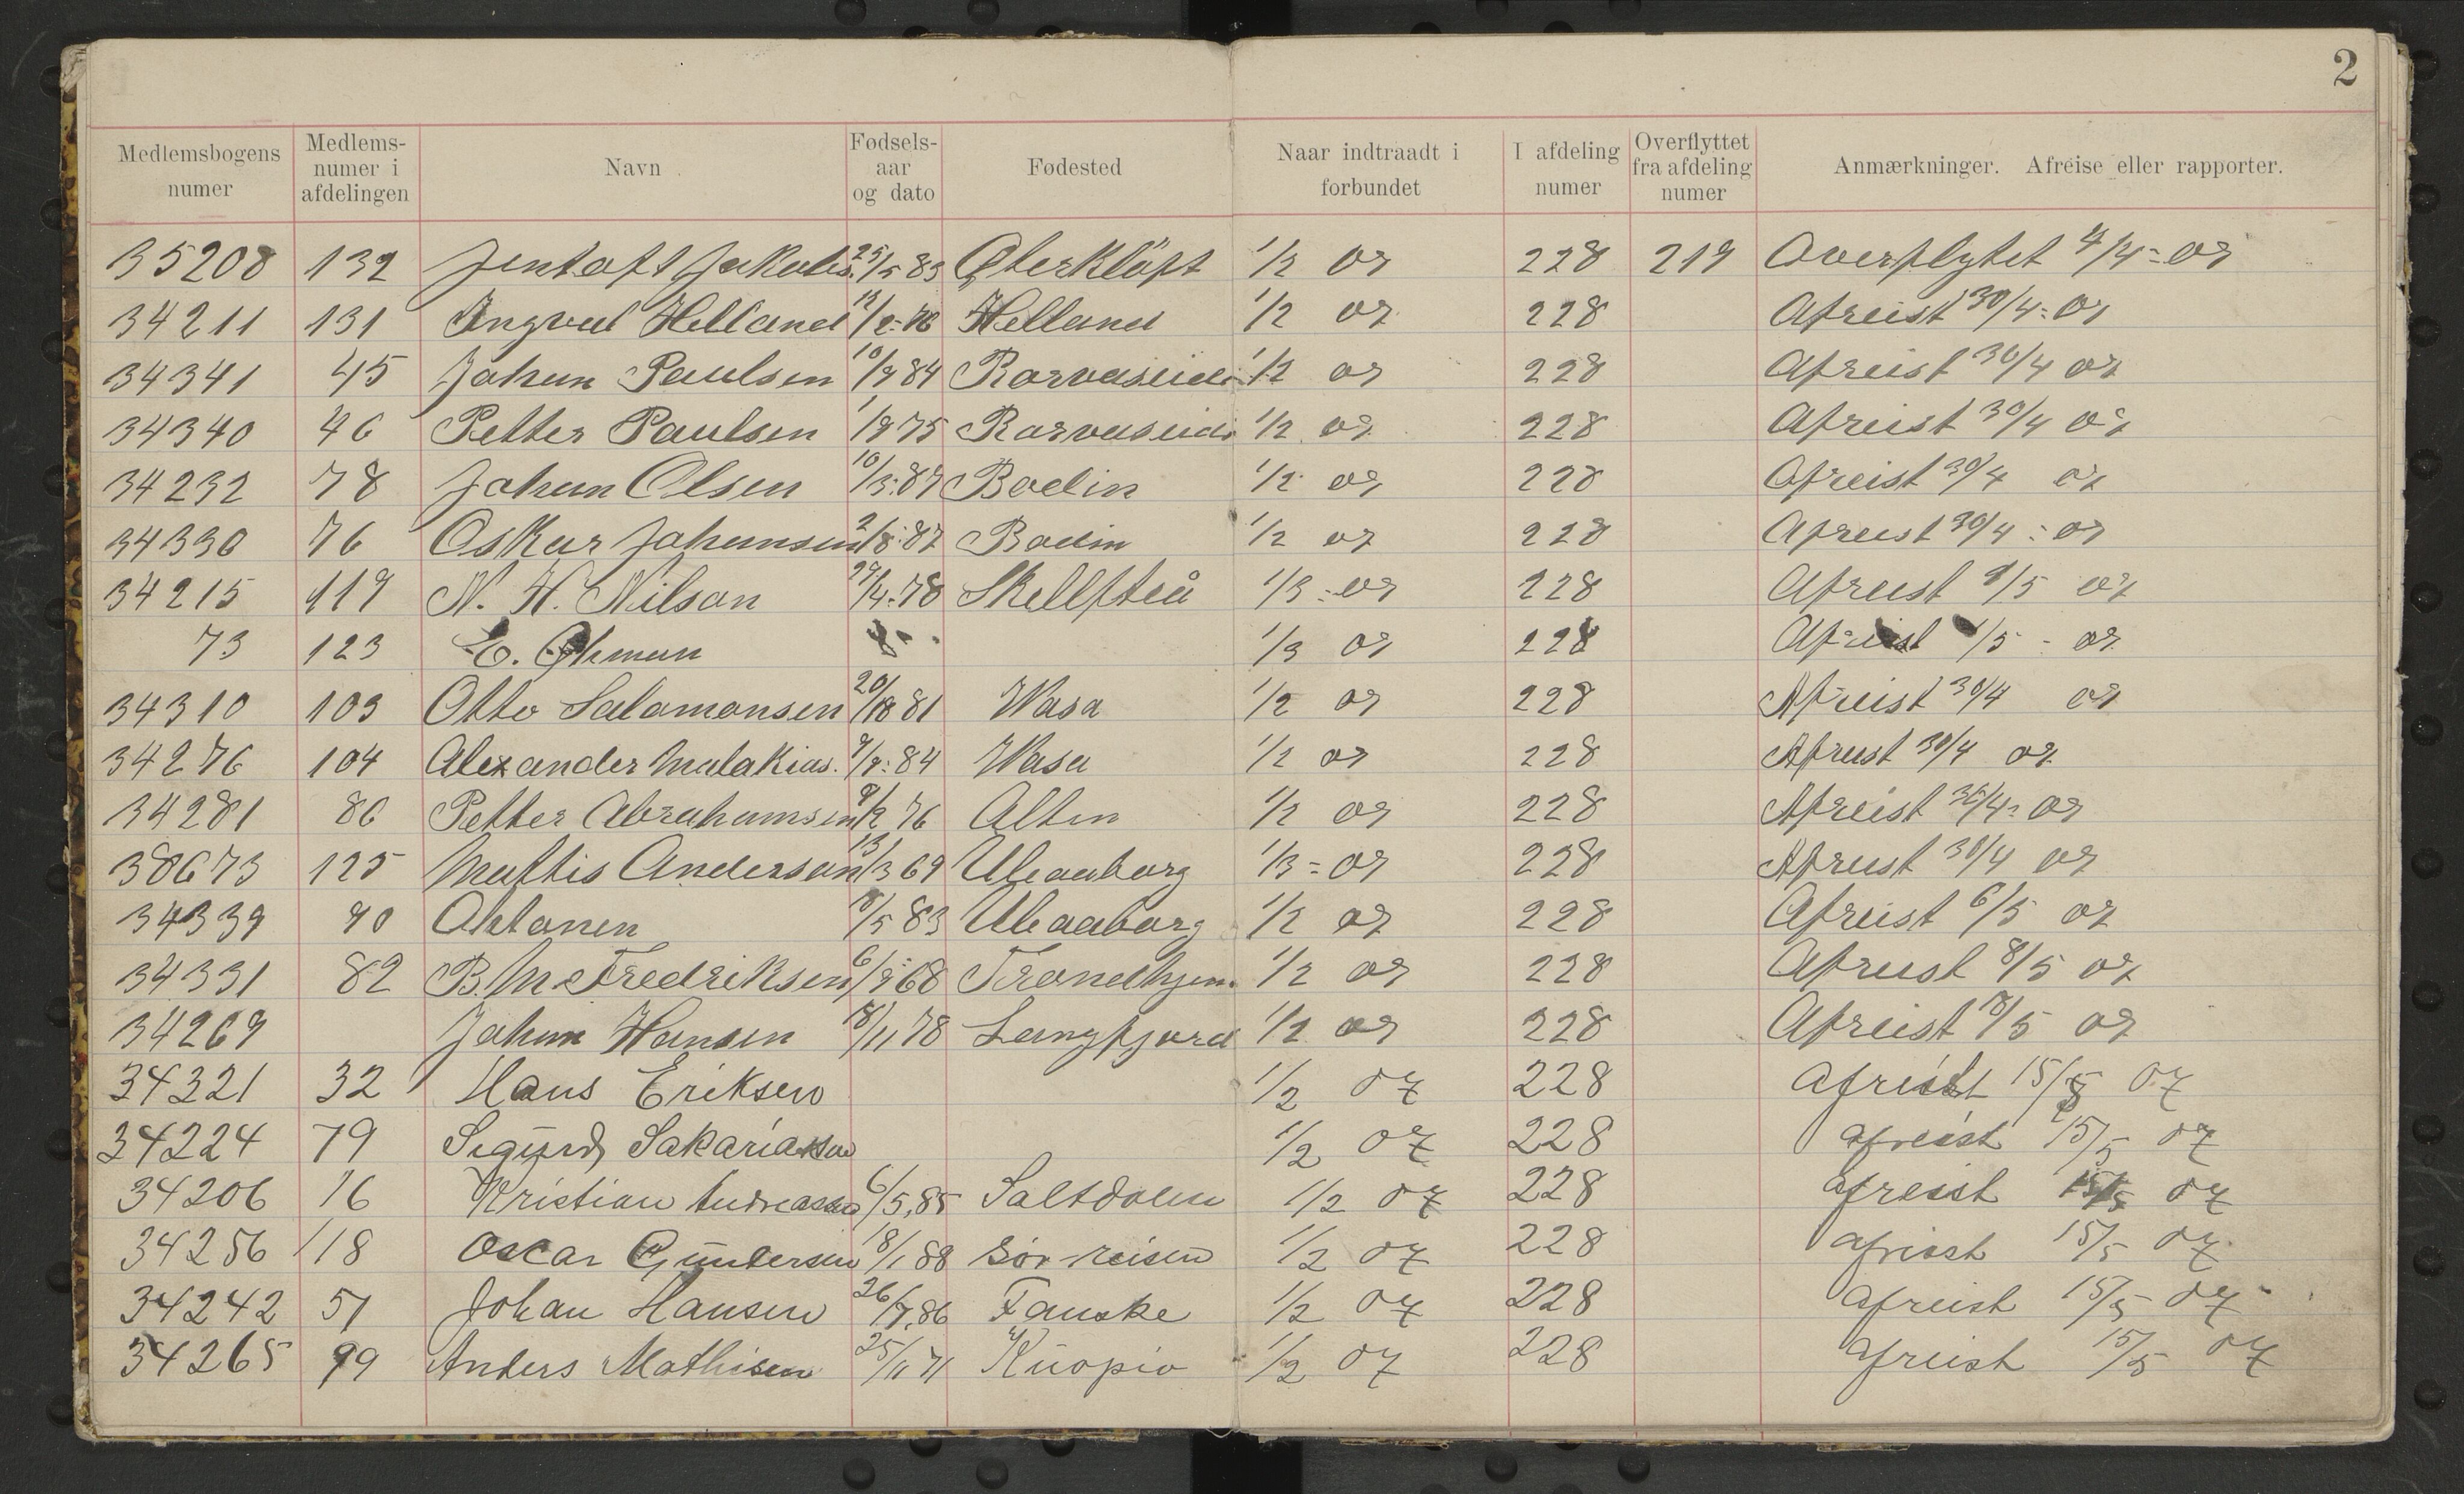 2
Medlemsbogens numer Medlems-numer i afdelingen Navn Fødsels-aar og dato Fødested Naar indtraadt i forbundet I afdeling numer Overflyttet fra afdeling numer Anmærkninger. Afreise eller rapporter.
35208 132 Jentoft Jakobs. 25/5 83 1/2 07 228 219 Overflytet 4/4 = 07
34211 131 Ingvul Helland Helland 1/2 07 228 Afreist 30/4 = 07
34341 45 Johan Paulsen 10/9 84 1/2 07 228 Afreist 30/4 07
34340 46 Petter Paulsen 1/9 75 1/2 07 228 Afreist 30/4 07
34232 78 Johan Olsen 10/3 87 Bodin 1/2 07 228 Afreist 30/4 07
34330 76 Oskar Johansen 2/8 87 Bodin 1/2 07 228 Afreist 30/4 = 07
34215 119 N. H. Nilson 29/4 78 Skellfteå 1/3 = 07 228 Afreist 9/5 07
73 123 E. Öhman 1/3 07 228 Afreist /5 - 07
34310 103 Otto Salamonsen 20/ 81 Wasa 1/2 07 228 Afreist 30/4 07
34276 104 Alexander Malakias. 84 Wasa 1/2 07 228 Afreist 30/4 07
34281 86 Petter Abrahamsen 9/2 76 Alten 1/2 07 228 Afreist 30/4 = 07
38673 125 Mattis Anderson 13/3 69 Uleaaborg 1/3 = 07 228 Afreist 30/4 07
34339 90 Ahtonen 8/5 83 Uleaaborg 1/2 07 228 Afreist 6/5 07
34331 82 B. M. Fredriksen 6/9 68 Trondhjem. 1/2 07 228 Afreist 8/5 07
34269 Johan Hansen 18/11 78 Langfjord 1/2 07 228 Afreist /5 07
34321 32 Hans Eriksen 1/2 07 228 Afreist 15/5 07
34224 79 Sigurd Sakariasen 1/2 07 228 afreist 15/5 07
34206 16 Kristian Andreassen 6/5, 85 Saltdalen 1/2 07 228 afreist 15/5 07
34256 118 Oscar Gundersen 18/1 88 Sör-reisen 1/2 07 228 afreist 15/5 07
34242 51 Johan Hansen 26/7, 86 Fauske 1/2 07 228 afreist 15/5 07
34265 99 Anders Mathisen 25/11 71 Kuopio 1/2 07 228 afreist 15/5 07